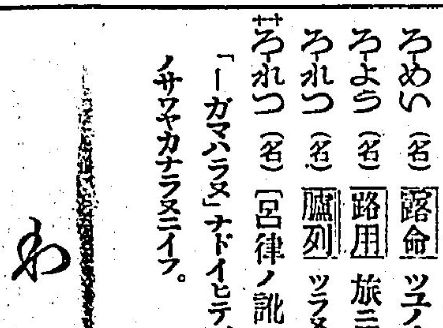 ろ-めい (名) 露命 ツユノ
ろ-よう (名) 路用 旅ニ
ろ-れつ (名) 臚列 ツラヌ
++ろ-れつ (名) [呂律ノ訛
「―ガマハラヌ」ナドイヒテ、
ノサワヤカナラヌニイフ。
わ